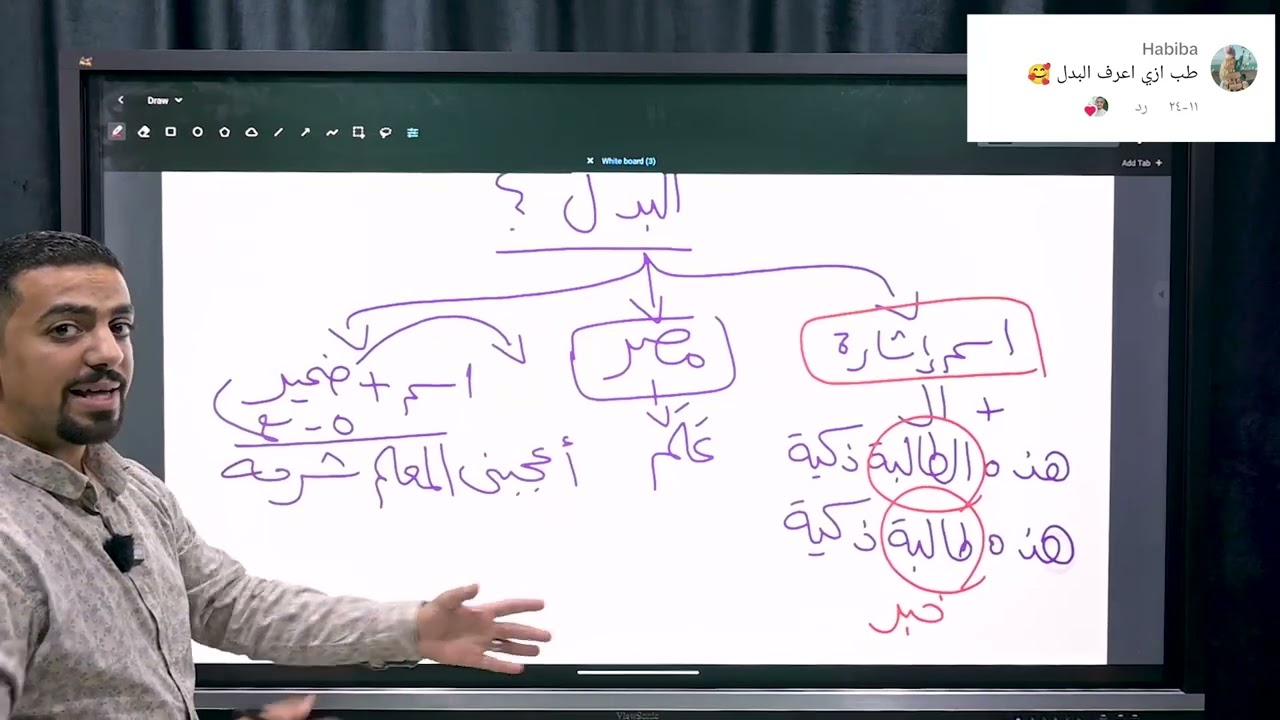 Habiba
طب ازي اعرف البدل 🥰
٢٤-١١ رد
Draw
White board (3)
Add Tab +
البدل ؟
اسم إشارة
+ ال
هذه الطالبة ذكية
هذه طالبة ذكية
خبر
مصر
عَالَم
اسم + ضمير
أعجبنى المعلم شرحه
ViewSonic